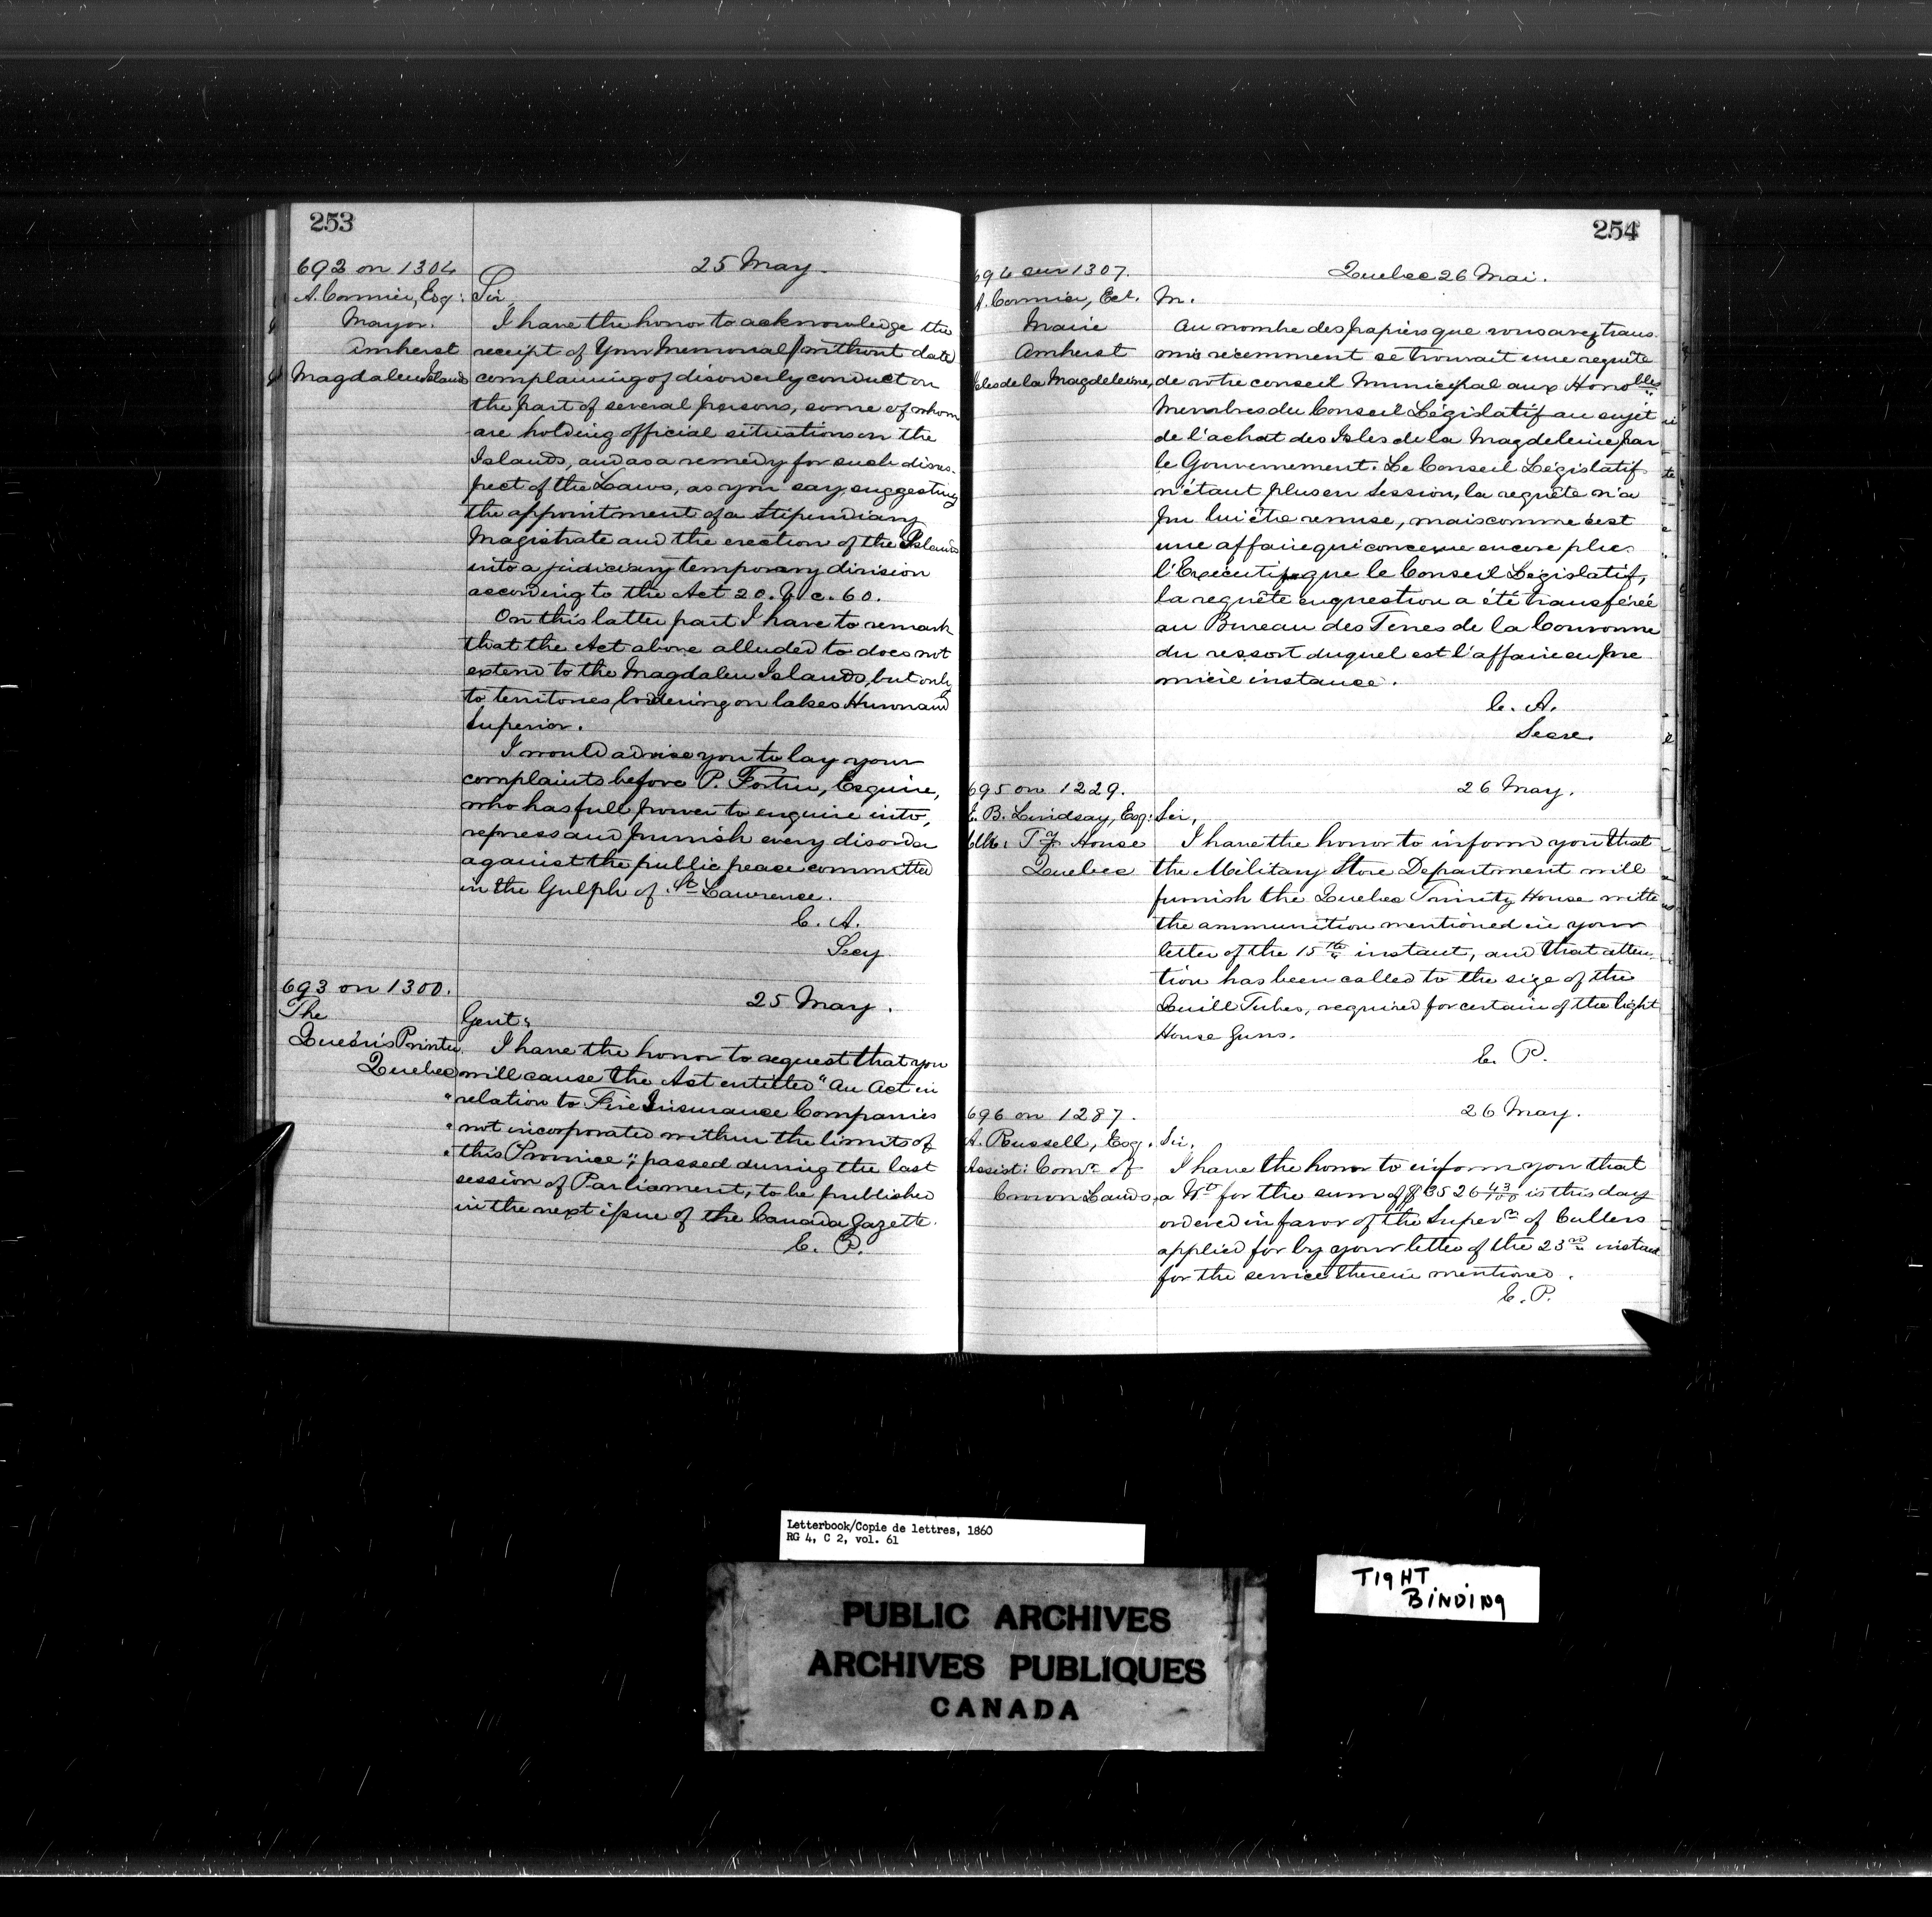 253
692 on 1304
A. Cormier, Esq:
Mayor.
Amherst
Magdalen Islands
25 May.
Sir,
I have the honor to acknowledge the
receipt of Your Memorial (without date)
complaining of disorderly conduct on
the part of several persons, some of whom
are holding official situations on the
Islands, and as a remedy for such disres-
pect of the Laws, as you say, suggesting
the appointment of a Stipendiary
Magistrate and the erection of the Islands
into a judiciary temporary division
according to the Act 20. V. c. 60.
On this latter part I have to remark
that the Act above alluded to does not
extend to the Magdalen Islands, but only
to territories bordering on lakes Huron and
Superior.
I would advise you to lay your
complaints before P. Fortin, Esquire,
who has full power to enquire into,
repress and punish every disorder
against the public peace committed
in the Gulph of St. Lawrence.
C. A.
Secy
693 on 1300.
The
Queen's Printer.
Quebec
25 May.
Gent:
I have the honor to request that you
will cause the Act entitled "An Act in
"relation to Fire Insurance Companies
"not incorporated within the limits of
"this Province", passed during the last
session of Parliament, to be published
in the next issue of the Canada Gazette.
C. P.
254
694 sur 1307.
A. Cormier, Ecr.
Maire
Amherst
Isles de la Magdeleine,
Quebec 26 Mai.
M.
Au nombre des papiers que vous avez trans-
mis récemment se trouvait une requête
de votre conseil Municipal aux Honobles
Membres du Conseil Législatif au sujet
de l'achat des Isles de la Magdeleine par
le Gouvernement. Le Conseil Législatif
n'étant plus en Session, la requête n'a
pu lui être remise, mais comme c'est
une affaire qui concerne encore plus
l'Exécutif que le Conseil Législatif,
la requête en question a été transférée
au Bureau des Terres de la Couronne
du ressort duquel est l'affaire en pre
mière instance.
C. A.
Secre.
695 on 1229.
E. B. Lindsay, Esq:
Clk: Ty House
Quebec
26 May.
Sir,
I have the honor to inform you that
the Military Store Department will
furnish the Quebec Trinity House with
the ammunition mentioned in your
letter of the 15th instant, and that atten-
tion has been called to the size of the
Quill Tubes, required for certain of the light
House Guns.
C. P.
696 on 1287.
A. Russell, Esq.
Assist: Comr. of
Crown Lands,
26 May.
Sir,
I have the honor to inform you that
a Wt for the sum of $3526 43/100 is this day
ordered in favor of the Superr. of Cullers
applied for by your letter of the 23rd instant
for the service therein mentioned.
C. P.
Letterbook/Copie de lettres, 1860
RG 4, C 2, vol. 61
TIGHT
BINDING
PUBLIC ARCHIVES
ARCHIVES PUBLIQUES
CANADA